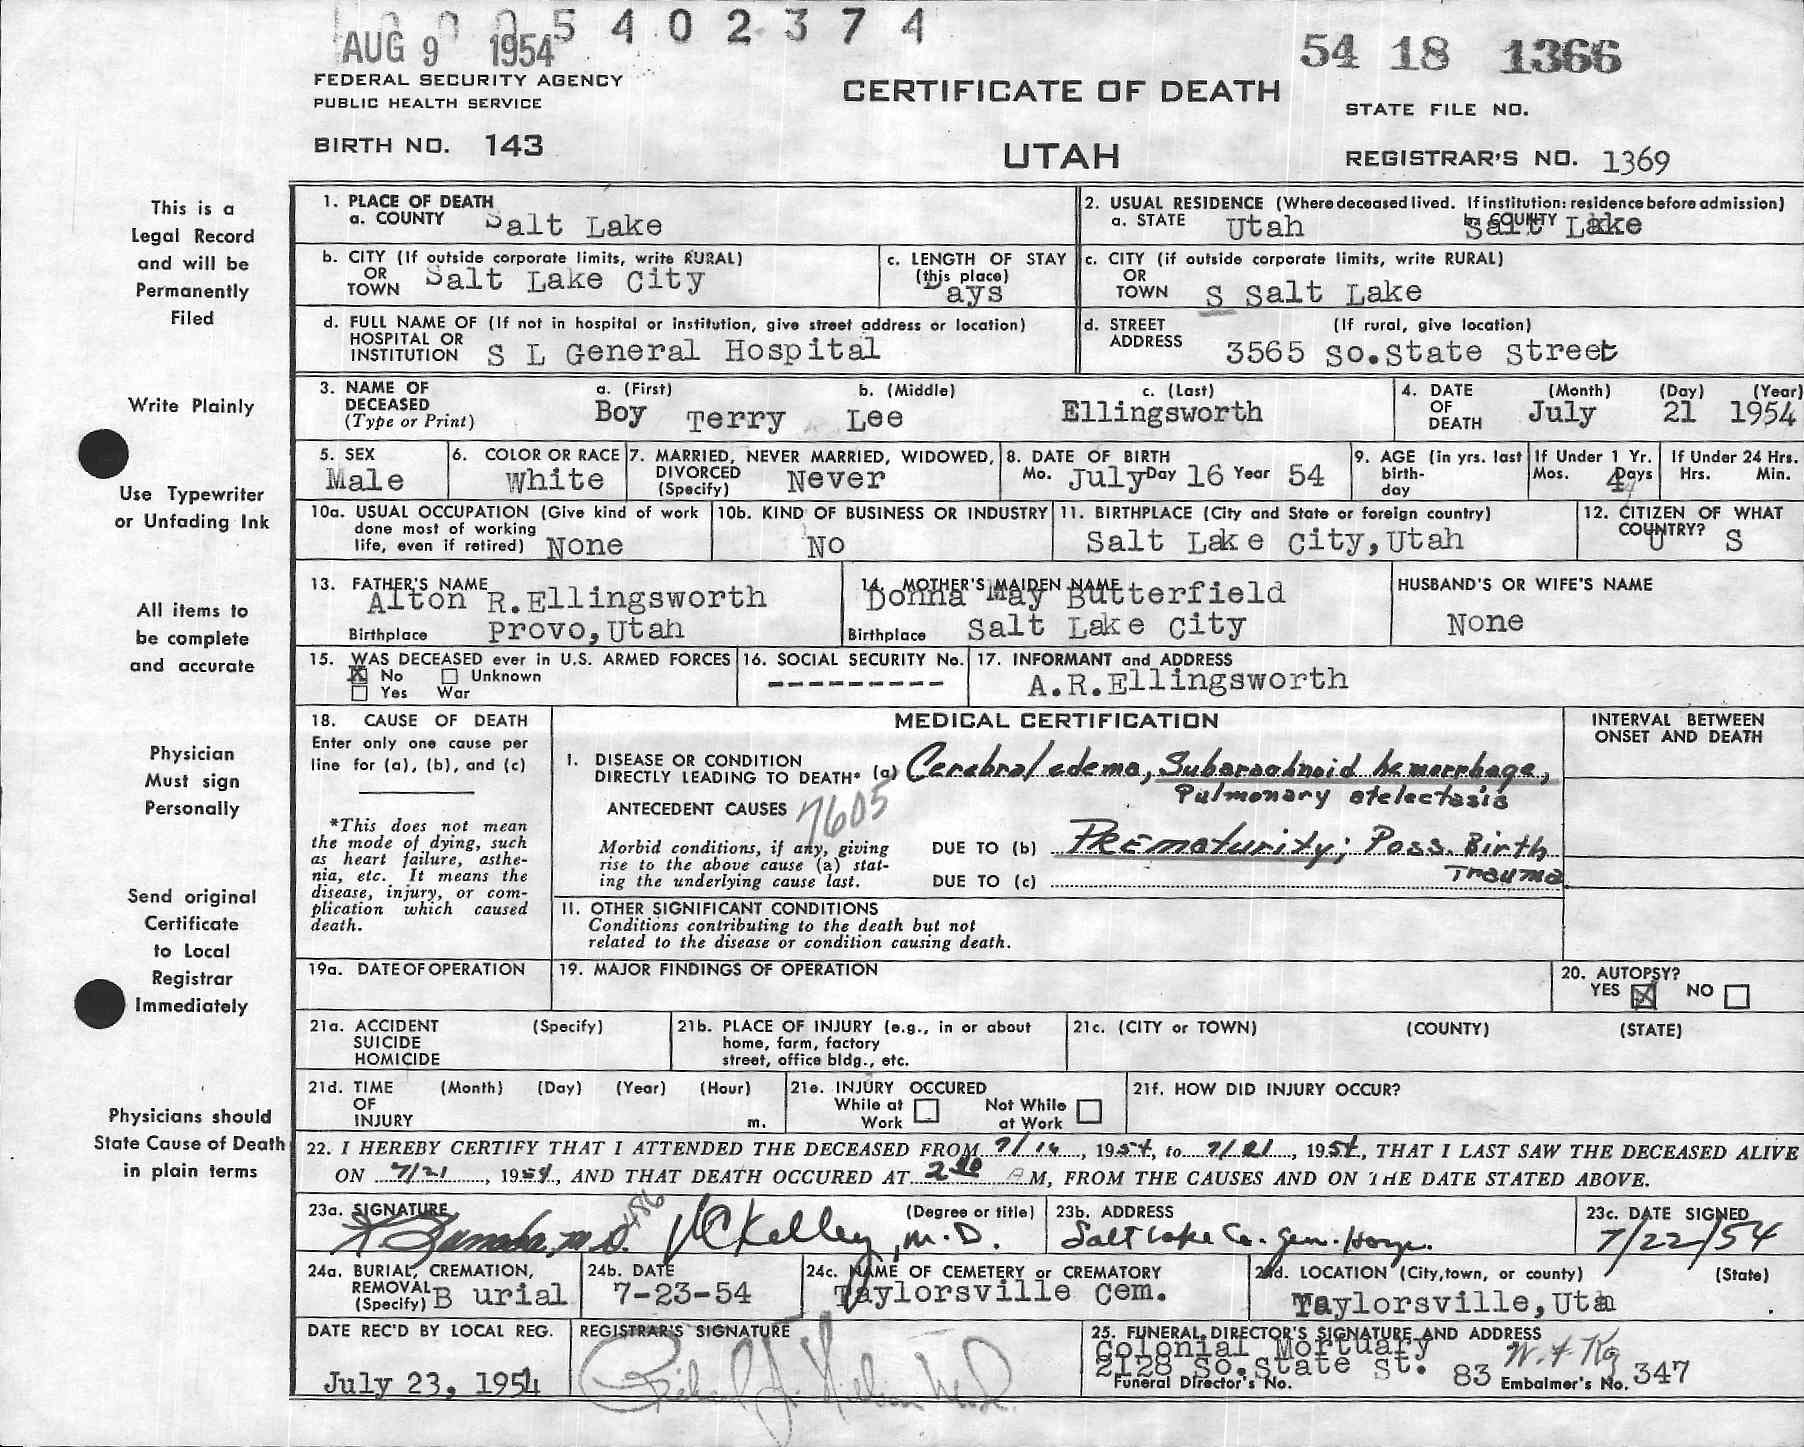 AUG 9 1954
5 4 0 2 3 7 4
54 18 1366
FEDERAL SECURITY AGENCY
PUBLIC HEALTH SERVICE
CERTIFICATE OF DEATH
STATE FILE NO.
BIRTH NO. 143
UTAH
REGISTRAR'S NO. 1369
This is a
Legal Record
and will be
Permanently
Filed
Write Plainly
Use Typewriter
or Unfading Ink
All items to
be complete
and accurate
Physician
Must sign
Personally
Send original
Certificate
to Local
Registrar
Immediately
Physicians should
State Cause of Death
in plain terms
1. PLACE OF DEATH
a. COUNTY Salt Lake
2. USUAL RESIDENCE (Where deceased lived. If institution: residence before admission)
a. STATE Utah b. COUNTY Salt Lake
b. CITY (If outside corporate limits, write RURAL)
OR
TOWN Salt Lake City
c. LENGTH OF STAY
(this place)
Days
c. CITY (if outside corporate limits, write RURAL)
OR
TOWN S Salt Lake
d. FULL NAME OF (If not in hospital or institution, give street address or location)
HOSPITAL OR
INSTITUTION S L General Hospital
d. STREET (If rural, give location)
ADDRESS 3565 So.State Street
3. NAME OF DECEASED
(Type or Print)
a. (First) b. (Middle) c. (Last)
Boy Terry Lee Ellingsworth
4. DATE OF DEATH
(Month) (Day) (Year)
July 21 1954
5. SEX
Male
6. COLOR OR RACE
White
7. MARRIED, NEVER MARRIED, WIDOWED,
DIVORCED
(Specify) Never
8. DATE OF BIRTH
Mo. July Day 16 Year 54
9. AGE (in yrs. last
birth-
day
If Under 1 Yr.
Mos. 4 Days
If Under 24 Hrs.
Hrs. Min.
10a. USUAL OCCUPATION (Give kind of work
done most of working
life, even if retired) None
10b. KIND OF BUSINESS OR INDUSTRY
No
11. BIRTHPLACE (City and State or foreign country)
Salt Lake City, Utah
12. CITIZEN OF WHAT
COUNTRY?
U S
13. FATHER'S NAME
Alton R.Ellingsworth
Birthplace Provo,Utah
14. MOTHER'S MAIDEN NAME
Donna May Butterfield
Birthplace Salt Lake City
HUSBAND'S OR WIFE'S NAME
None
15. WAS DECEASED ever in U.S. ARMED FORCES
X No Unknown
Yes War
16. SOCIAL SECURITY No.
---------
17. INFORMANT and ADDRESS
A.R.Ellingsworth
18. CAUSE OF DEATH
Enter only one cause per
line for (a), (b), and (c)
*This does not mean
the mode of dying, such
as heart failure, asthe-
nia, etc. It means the
disease, injury, or com-
plication which caused
death.
MEDICAL CERTIFICATION
INTERVAL BETWEEN
ONSET AND DEATH
I. DISEASE OR CONDITION
DIRECTLY LEADING TO DEATH* (a) Cerebral edema, Subarachnoid hemorrhage,
Pulmonary atelectasis
ANTECEDENT CAUSES 7605
Morbid conditions, if any, giving
rise to the above cause (a) stat-
ing the underlying cause last.
DUE TO (b) Prematurity; Poss. Birth
Trauma
DUE TO (c)
II. OTHER SIGNIFICANT CONDITIONS
Conditions contributing to the death but not
related to the disease or condition causing death.
19a. DATE OF OPERATION
19. MAJOR FINDINGS OF OPERATION
20. AUTOPSY?
YES X NO
21a. ACCIDENT (Specify)
SUICIDE
HOMICIDE
21b. PLACE OF INJURY (e.g., in or about
home, farm, factory
street, office bldg., etc.
21c. (CITY or TOWN) (COUNTY) (STATE)
21d. TIME (Month) (Day) (Year) (Hour)
OF
INJURY m.
21e. INJURY OCCURED
While at Work
Not While at Work
21f. HOW DID INJURY OCCUR?
22. I HEREBY CERTIFY THAT I ATTENDED THE DECEASED FROM 7/16, 1954, to 7/21, 1954, THAT I LAST SAW THE DECEASED ALIVE
ON 7/21, 1954, AND THAT DEATH OCCURED AT 2 A M, FROM THE CAUSES AND ON THE DATE STATED ABOVE.
23a. SIGNATURE (Degree or title)
M.D. 486 McKelley, M.D.
23b. ADDRESS
Salt Lake Co. Gen. Hosp.
23c. DATE SIGNED
7/22/54
24a. BURIAL, CREMATION,
REMOVAL
(Specify) B urial
24b. DATE
7-23-54
24c. NAME OF CEMETERY or CREMATORY
Taylorsville Cem.
24d. LOCATION (City, town, or county) (State)
Taylorsville,Uta
DATE REC'D BY LOCAL REG.
July 23, 1954
REGISTRAR'S SIGNATURE
25. FUNERAL DIRECTOR'S SIGNATURE AND ADDRESS
Colonial Mortuary
2128 So.State St. 83
Funeral Director's No. Embalmer's No. 347